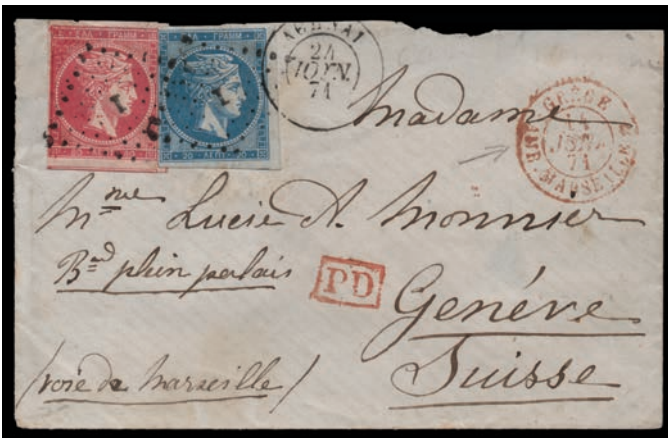 ΕΛΛ. ΓΡΑΜΜ.
ΕΛΛ. ΓΡΑΜΜ.
20 ΛΕΠ. 20
1
1
ΑΘΗΝΑΙ
24
ΙΟΥΝ.
71
GRÈCE
71
MARSEILLE
Madame
Mme Lucie A. Monnier
Bd plein palais
PD
Genéve
Suisse
(voie de Marseille)